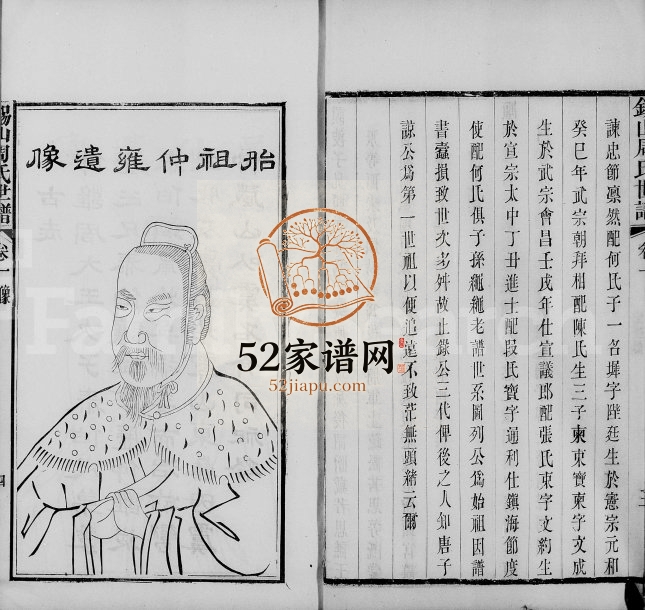 諫忠節凛然配何氏子一名墀字陞廷生於憲宗元和
癸巳年武宗朝拜相配陳氏生三子柬東寶柬字文成
生於武宗會昌壬戌年仕宣議郎配張氏東字文約生
於宣宗太中丁丑進士配段氏寶字通利仕鎮海節度
使配何氏俱子孫繩繩老譜世系圖列公爲始祖因譜
書蠹損致世次多舛故止錄公三代俾後之人知唐子
諒公爲第一世祖以便追遠不致茫無頭緒云爾
錫山周氏世譜
卷一
胎祖仲雍遺像
錫山周氏世譜
卷一
像
四
52家谱网
52jiapu.com